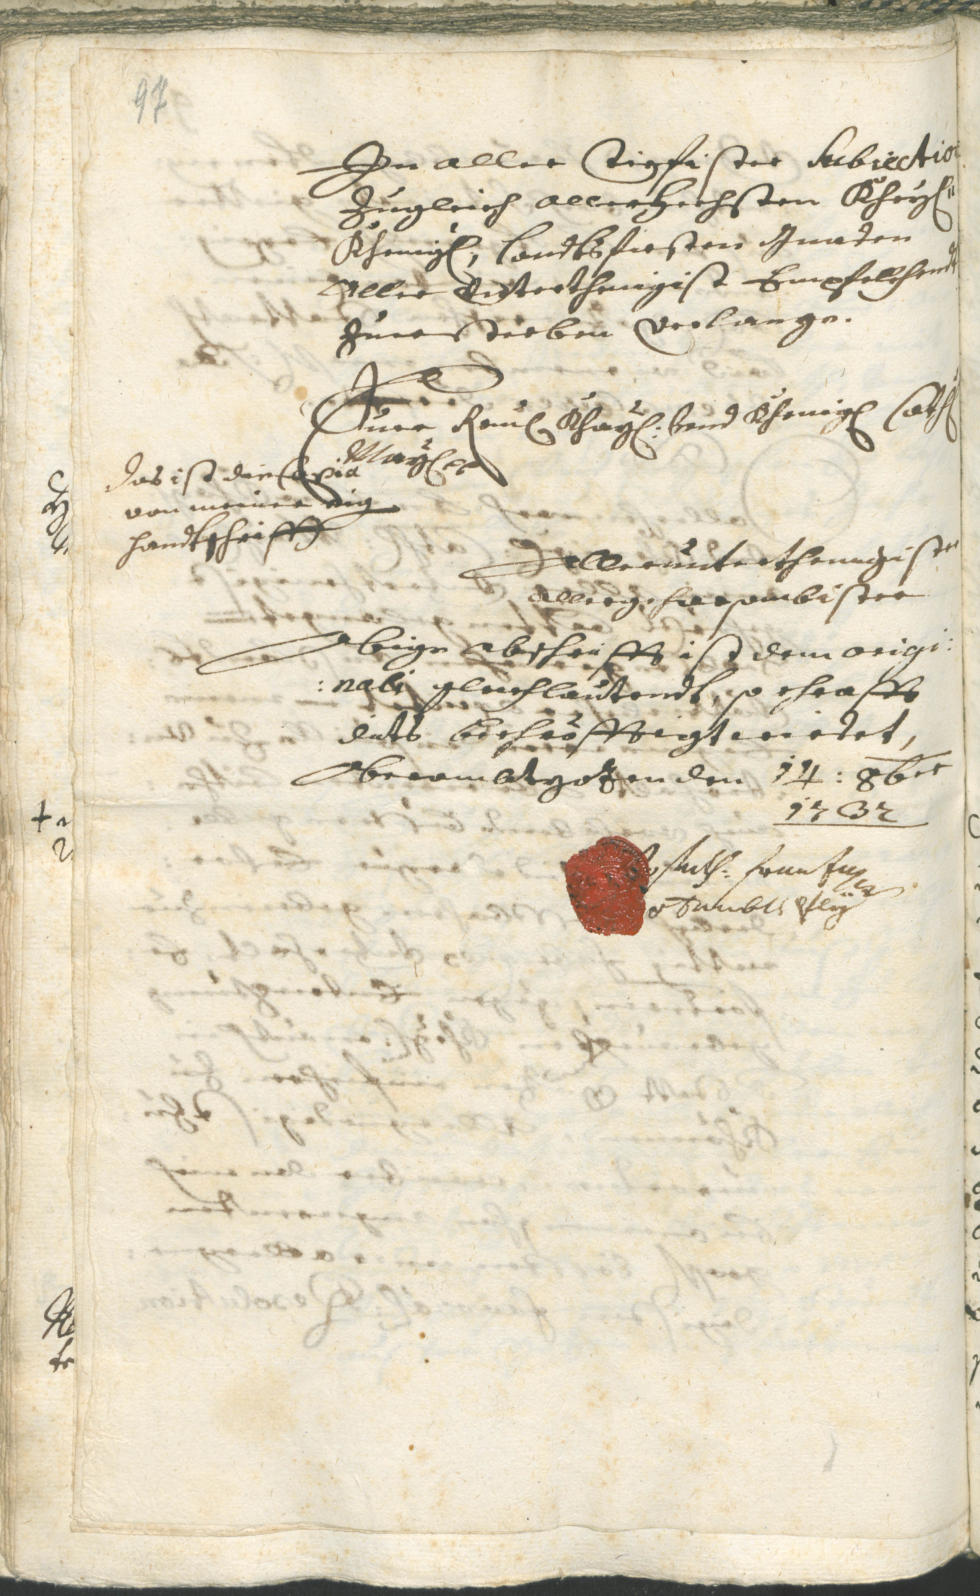 97
In aller Tieffister Subiectio
Zugleich allerhechsten Kheyß:
Khenigl, landtsfirsten Gnaden
Aller Unterthenigist Empfelchendt
Zuersterben verlange.
Euer Röm: Khayß: Vnd Khenigl Cath:
May: etc
das ist die Copia
von meiner eig
handtschrifft
Allerunterthenigister
allergehorsambister
Obige abschrifft ist dem origi:
:nali gleichlautendt, so chrafft
dits becrefftigt wirdet,
den 14: 8ber
1737